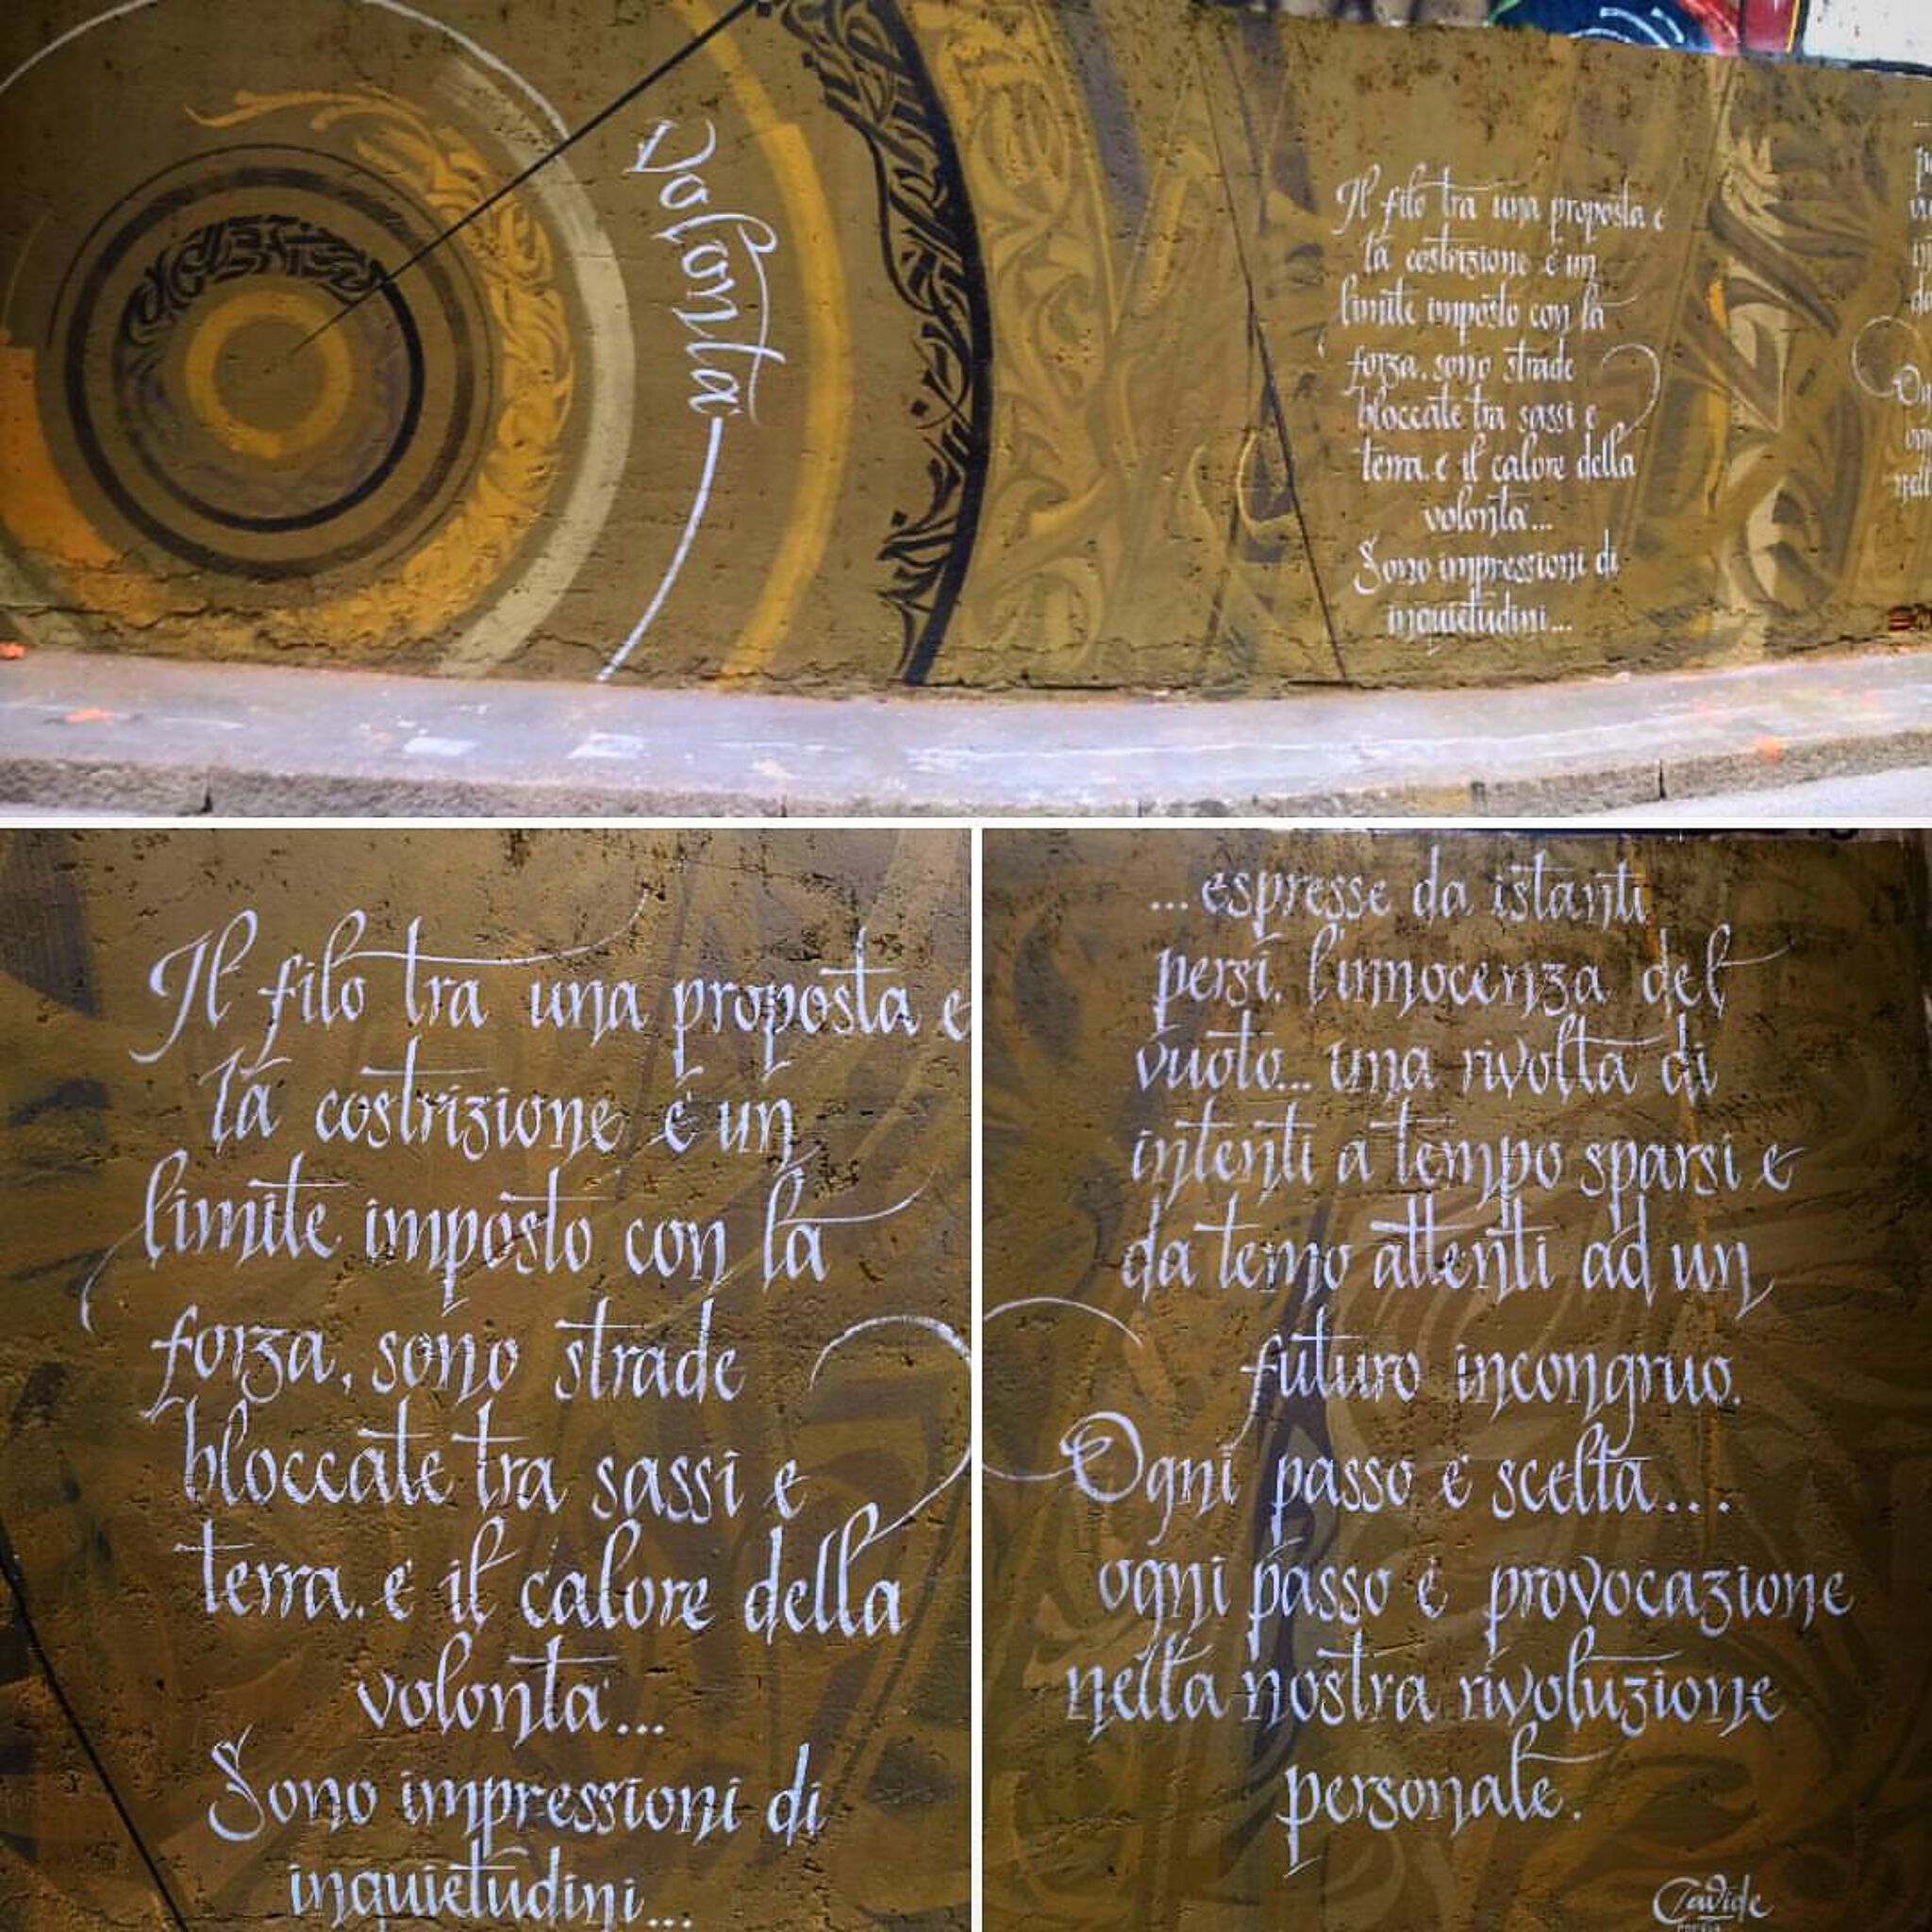 Volontà
Il filo tra una proposta e
la costrizione è un
limite imposto con la
forza. sono strade
bloccate tra sassi e
terra. e il calore della
volontà...
Sono impressioni di
inquietudini...
Il filo tra una proposta e
la costrizione è un
limite imposto con la
forza, sono strade
bloccate tra sassi e
terra. e il calore della
volontà...
Sono impressioni di
inquietudini...
... espresse da istanti
persi. l'innocenza del
vuoto... una rivolta di
intenti a tempo sparsi e
da temo attenti ad un
futuro incongruo.
Ogni passo è scelta...
ogni passo è provocazione
nella nostra rivoluzione
personale.
Davide